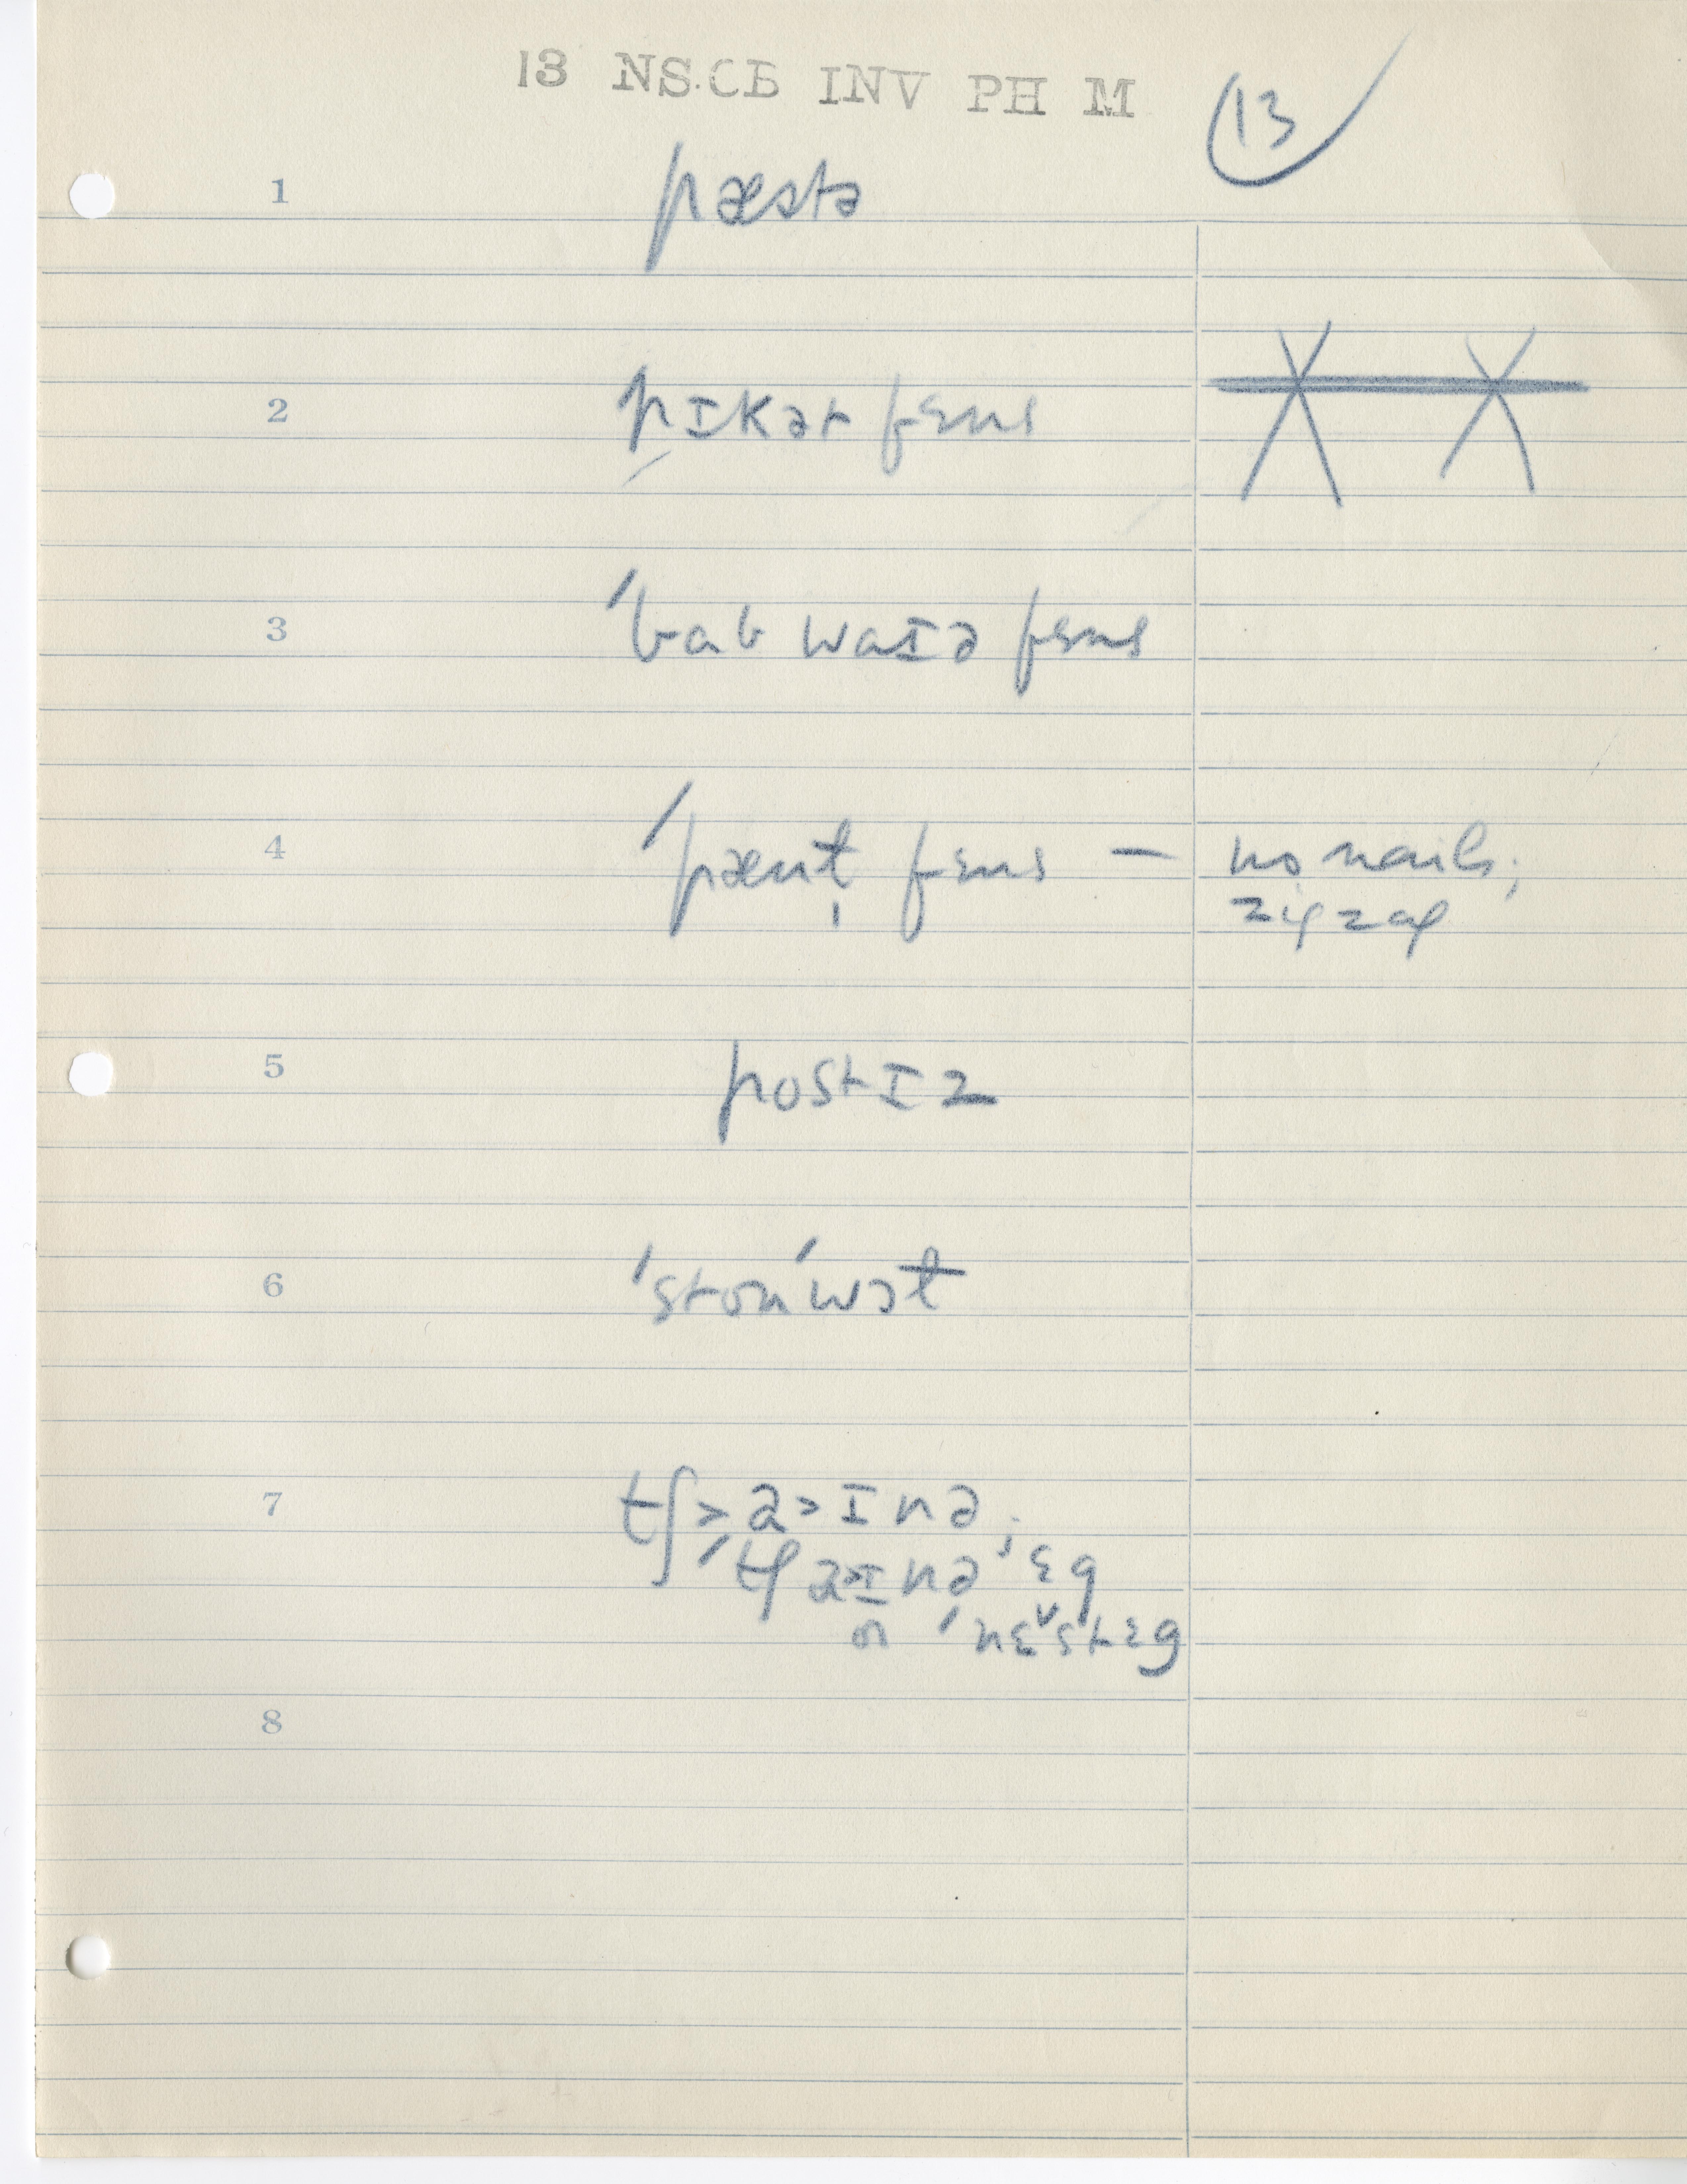 13 NS.CB INV PH M
13
1 pæstə
2 pɪkət fɛns
3 ˈbab waɪə fɛns
4 ˈpænt̩ fɛns — no nails;
zigzag
5 postɪz
6 ˈstonˈwɔɫ
7 tʃ>a>ɪnə;
ˈtʃa>ɪnə ɛg
or ˈnɛˇstɛg
8